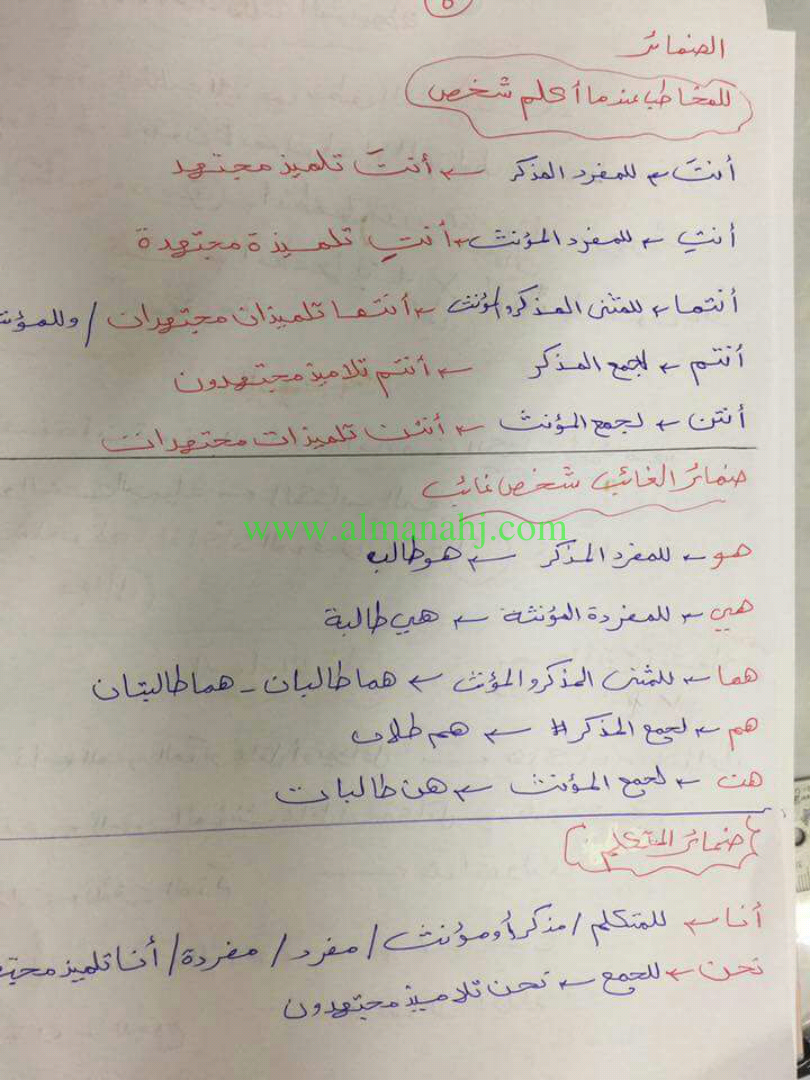 ٥
الضمائر
للمخاطب عندما أكلم شخص
أنتَ ← للمفرد المذكر ← أنتَ تلميذ مجتهد
أنتِ ← للمفرد المؤنث ← أنتِ تلميذة مجتهدة
أنتما ← للمثنى المذكر والمؤنث ← أنتما تلميذان مجتهدان / وللمؤنث
أنتم ← لجمع المذكر ← أنتم تلاميذ مجتهدون
أنتن ← لجمع المؤنث ← أنتن تلميذات مجتهدات
ضمائر الغائب شخص غائب
www.almanahj.com
هو ← للمفرد المذكر ← هو طالب
هي ← للمفردة المؤنثة ← هي طالبة
هما ← للمثنى المذكر والمؤنث ← هما طالبان - هما طالبتان
هم ← لجمع المذكر # ← هم طلاب
هن ← لجمع المؤنث ← هن طالبات
ضمائر المتكلم
أنا ← للمتكلم / مذكر أو مؤنث / مفرد / مفردة / أنا تلميذ
نحن ← للجمع ← نحن تلاميذ مجتهدون